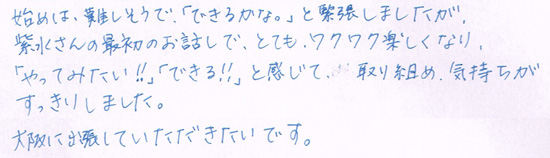 始めは、難しそうで、「できるかな。」と緊張しましたが、
紫水さんの最初のお話しで、とても、ワクワク楽しくなり、
「やってみたい!!」「できる!!」と感じて、取り組め、気持ちが
すっきりしました。
大阪に出張していただきたいです。